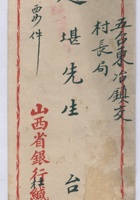 五台東冶鎮交
村長局
堪先生 台
要件
山西省銀行
緘